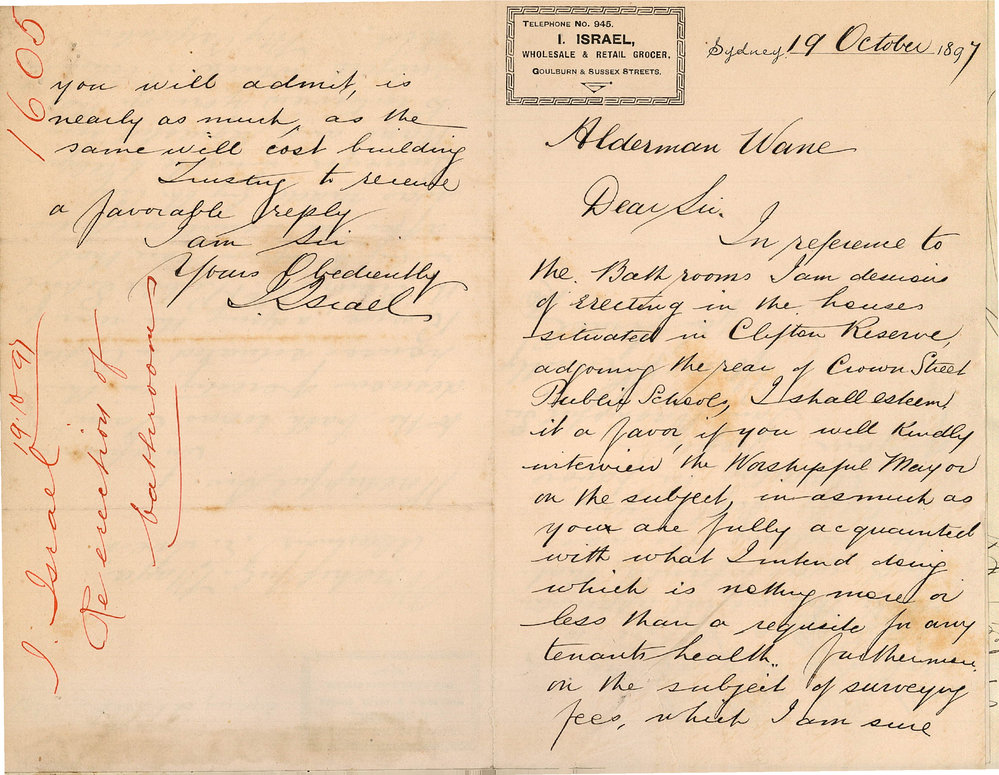 TELEPHONE NO. 945.
I. ISRAEL,
WHOLESALE & RETAIL GROCER,
GOULBURN & SUSSEX STREETS.
Sydney, 19 October 1897
Alderman Wane
Dear Sir.
In reference to
the Bath rooms I am desirous
of Erecting in the houses
situated in Clifton Reserve,
adjoining the rear of Crown Street
Public Schools, I shall esteem
it a favor, if you will Kindly
interview the Worshipful Mayor
on the subject, in as much as
you are fully acquainted
with what I intend doing
which is nothing more or
less than a requisite for any
tenants health. furthermore,
on the subject of surveying
fees, which I am sure
you will admit, is
nearly as much, as the
same will cost building
Trusting to receive
a favorable reply
I am Sir
Yours Obediently
I. Israel
1605
I. Israel 19.10.97
Re erection of
bathrooms